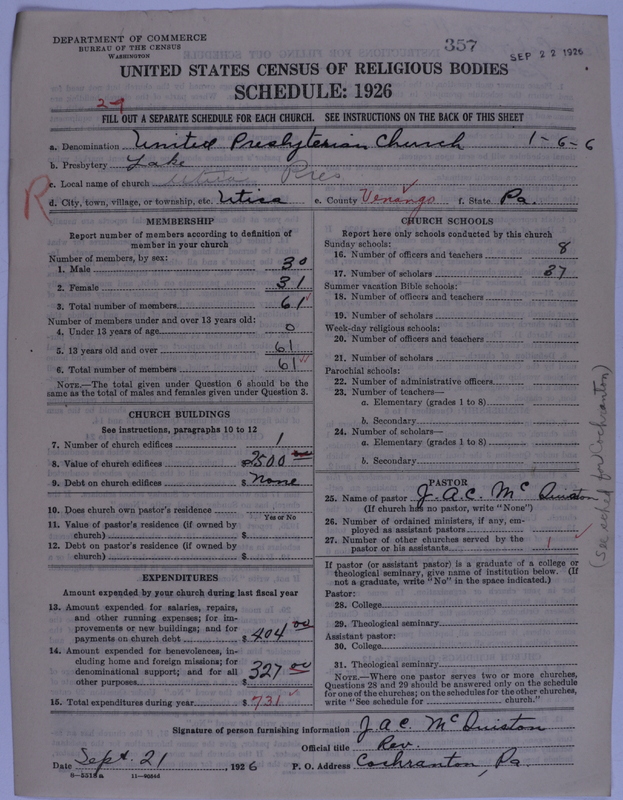 357
SEP 22 1926
DEPARTMENT OF COMMERCE
BUREAU OF THE CENSUS
WASHINGTON
UNITED STATES CENSUS OF RELIGIOUS BODIES
SCHEDULE: 1926
2-9
FILL OUT A SEPARATE SCHEDULE FOR EACH CHURCH. SEE INSTRUCTIONS ON THE BACK OF THIS SHEET
a. Denomination United Presbyterian Church 1-6-6
b. Presbytery Lake
c. Local name of church Utica Pres
R
d. City, town, village, or township, etc. Utica e. County Venango f. State Pa.
MEMBERSHIP
Report number of members according to definition of
member in your church
Number of members, by sex:
1. Male 30
2. Female 31
3. Total number of members 61
Number of members under and over 13 years old:
4. Under 13 years of age 0
5. 13 years old and over 61
6. Total number of members 61
NOTE.—The total given under Question 6 should be the
same as the total of males and females given under Question 3.
CHURCH BUILDINGS
See instructions, paragraphs 10 to 12
7. Number of church edifices 1
8. Value of church edifices $2500 00
9. Debt on church edifices $ None
10. Does church own pastor's residence
Yes or No
11. Value of pastor's residence (if owned by
church) $
12. Debt on pastor's residence (if owned by
church) $
EXPENDITURES
Amount expended by your church during last fiscal year
13. Amount expended for salaries, repairs,
and other running expenses; for im-
provements or new buildings; and for
payments on church debt $ 404 00
14. Amount expended for benevolences, in-
cluding home and foreign missions; for
denominational support; and for all
other purposes $ 327 00
15. Total expenditures during year $ 731
CHURCH SCHOOLS
Report here only schools conducted by this church
Sunday schools:
16. Number of officers and teachers 8
17. Number of scholars 37
Summer vacation Bible schools:
18. Number of officers and teachers
19. Number of scholars
Week-day religious schools:
20. Number of officers and teachers
21. Number of scholars
Parochial schools:
22. Number of administrative officers
23. Number of teachers—
a. Elementary (grades 1 to 8)
b. Secondary
24. Number of scholars—
a. Elementary (grades 1 to 8)
b. Secondary
PASTOR
25. Name of pastor J. A. C. McQuiston
(If church has no pastor, write "None")
26. Number of ordained ministers, if any, em-
ployed as assistant pastors
27. Number of other churches served by the
pastor or his assistants 1
If pastor (or assistant pastor) is a graduate of a college or
theological seminary, give name of institution below. (If
not a graduate, write "No" in the space indicated.)
Pastor:
28. College
29. Theological seminary
Assistant pastor:
30. College
31. Theological seminary
NOTE.—Where one pastor serves two or more churches,
Questions 28 and 29 should be answered only on the schedule
for one of the churches; on the schedules for the other churches,
write "See schedule for church."
(See sched for Cochranton)
Signature of person furnishing information J A C. McQuiston
Official title Rev.
Date Sept. 21, 1926 P. O. Address Cochranton, Pa.